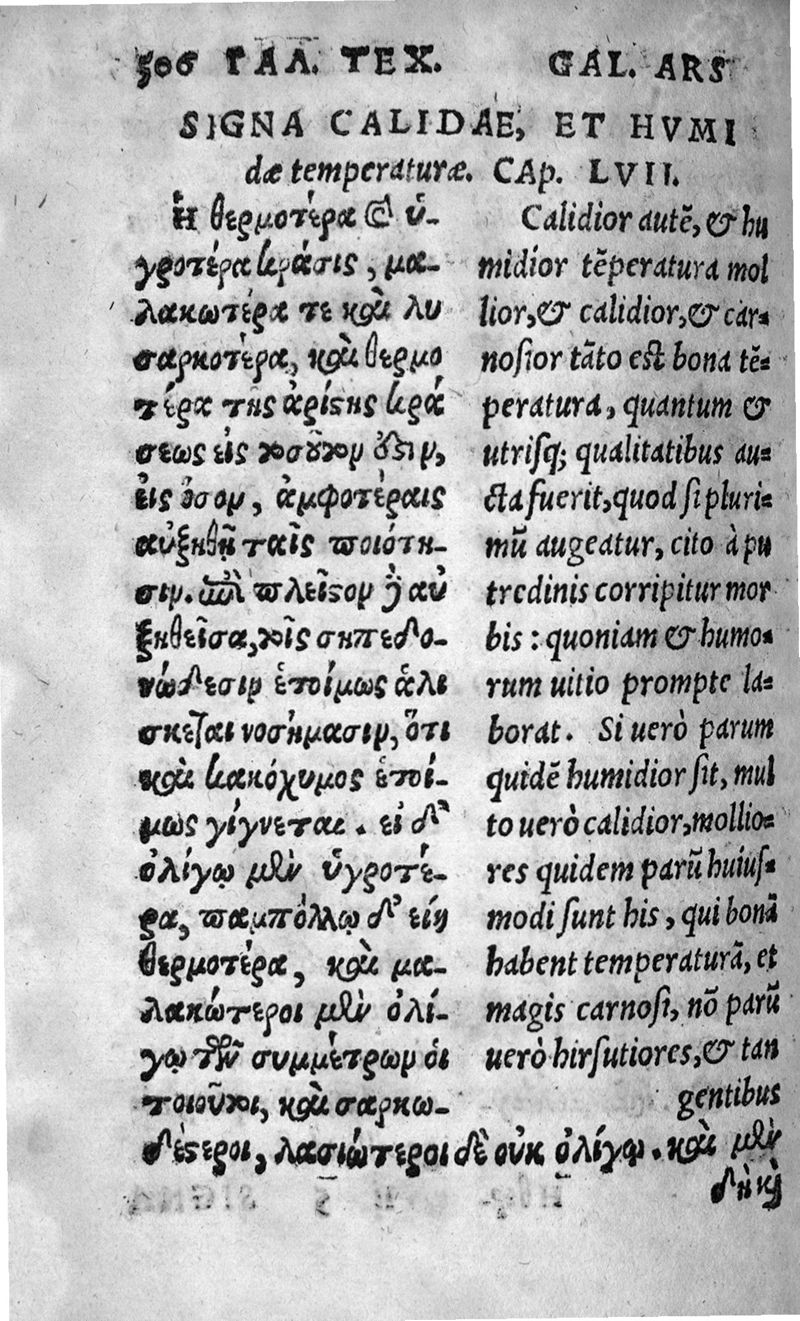 506 ΓΑΛ. ΤΕΧ. GAL. ARS
SIGNA CALIDAE, ET HVMI
dæ temperaturæ. CAp. LVII.
Ἡ θερμοτέρα & ὑ-
γροτέρα κρᾶσις, μα-
λακωτέρα τε καὶ λυ
σαρκοτέρα, καὶ θερμο
τέρα τῆς ἀρίςης κρά
σεως εἰς τοσοῦτον ὅδιν,
εἰς ὅσον, ἀμφοτέραις
αὐξηθῇ ταῖς ποιότη-
σιν. ἐπὶ πλεῖςον ἢ αὐ
ξηθεῖσα, τοῖς σηπεδο-
νώδεσιν ἑτοίμως ἁλί
σκεται νοσήμασιν, ὅτι
καὶ κακόχυμος ἑτοί-
μως γίγνεται. εἰ δ'
ὀλίγῳ μὲν ὑγροτέ-
ρα, παμπόλλῳ δ' εἴη
θερμοτέρα, καὶ μα-
λακώτεροι μὲν ὀλί-
γῳ τῶν συμμέτρων οἱ
τοιοῦτοι, καὶ σαρκω-
δέςεροι, λασιώτεροι δὲ οὐκ ὀλίγῳ. καὶ μὲν
δὴ κὶ
Calidior autẽ, & hu
midior tẽperatura mol
lior, & calidior, & car-
nosior tãto est bona tẽ-
peratura, quantum &
utrisq; qualitatibus au-
cta fuerit, quod si pluri-
mũ augeatur, cito à pu
tredinis corripitur mor
bis: quoniam & humo-
rum uitio prompte la-
borat. Si uerò parum
quidẽ humidior sit, mul
to uerò calidior, mollio-
res quidem parũ huius-
modi sunt his, qui bonã
habent temperaturã, et
magis carnosi, nõ parũ
uerò hirsutiores, & tan
gentibus